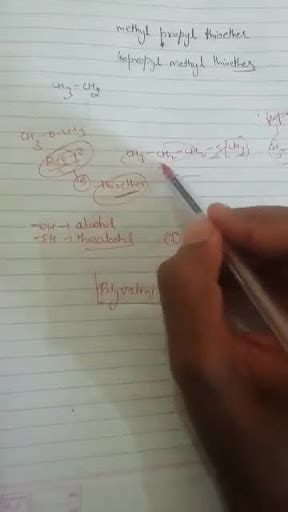 methyl propyl thioether
isopropyl methyl thioethers
CH3-CH2
CH3-O-CH3
CH3-CH2-CH2-S-CH3
thioether
-OH → alcohol
-SH → thioalcohol
(1)
Polyvalent